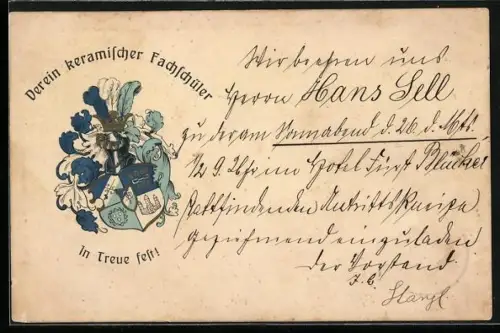 Verein keramischer Fachschüler
In Treue fest!
Wir beehren uns
Herrn Hans Sell
zu der am Sonnabend d. 26. d. Mts.
1/2 9. Uhr im Hotel Fürst Blücher
stattfindenden Antrittskneipe
geziehmend einzuladen
Der Vorstand
Stangl